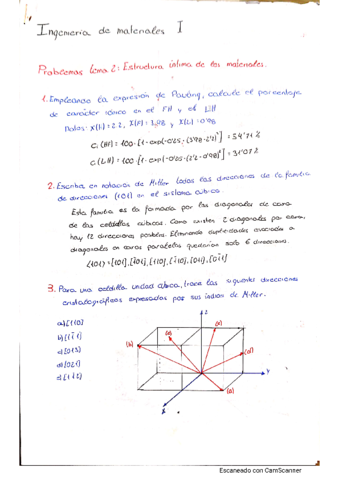 Ingeniería de materiales I
Problemas tema 2: Estructura íntima de los materiales.
1. Empleando la expresión de Pauling, calcule el porcentaje
de carácter iónico en el FH y el LiH
Datos: X(H)=2'2, X(F)=3'98, X(Li)=0'98
C.I(HF) = 100·[1-exp(-0'25·(3'98-2'2)²] = 54'71%
C.I(LiH) = 100·[1-exp(-0'25·(2'2-0'98)²] = 31'07%
2. Escriba en notación de Miller todas las direcciones de la familia
de direcciones <101> en el sistema cúbico.
Esta familia es la formada por las diagonales de cara
de las celdillas cúbicas. Como existen 2 diagonales por cara,
hay 12 direcciones posibles. Eliminando duplicidades asociadas a
diagonales en caras paralelas quedarían solo 6 direcciones.
<101> = [101], [1̄01], [110], [1̄10], [011], [01̄1]
3. Para una celdilla unidad cúbica, trace las siguientes direcciones
cristalográficas expresadas por sus índices de Miller.
a) [110]
b) [1̄1̄1]
c) [013]
d) [021]
Z
Y
X
(b)
(c)
(d)
(a)
Escaneado con CamScanner